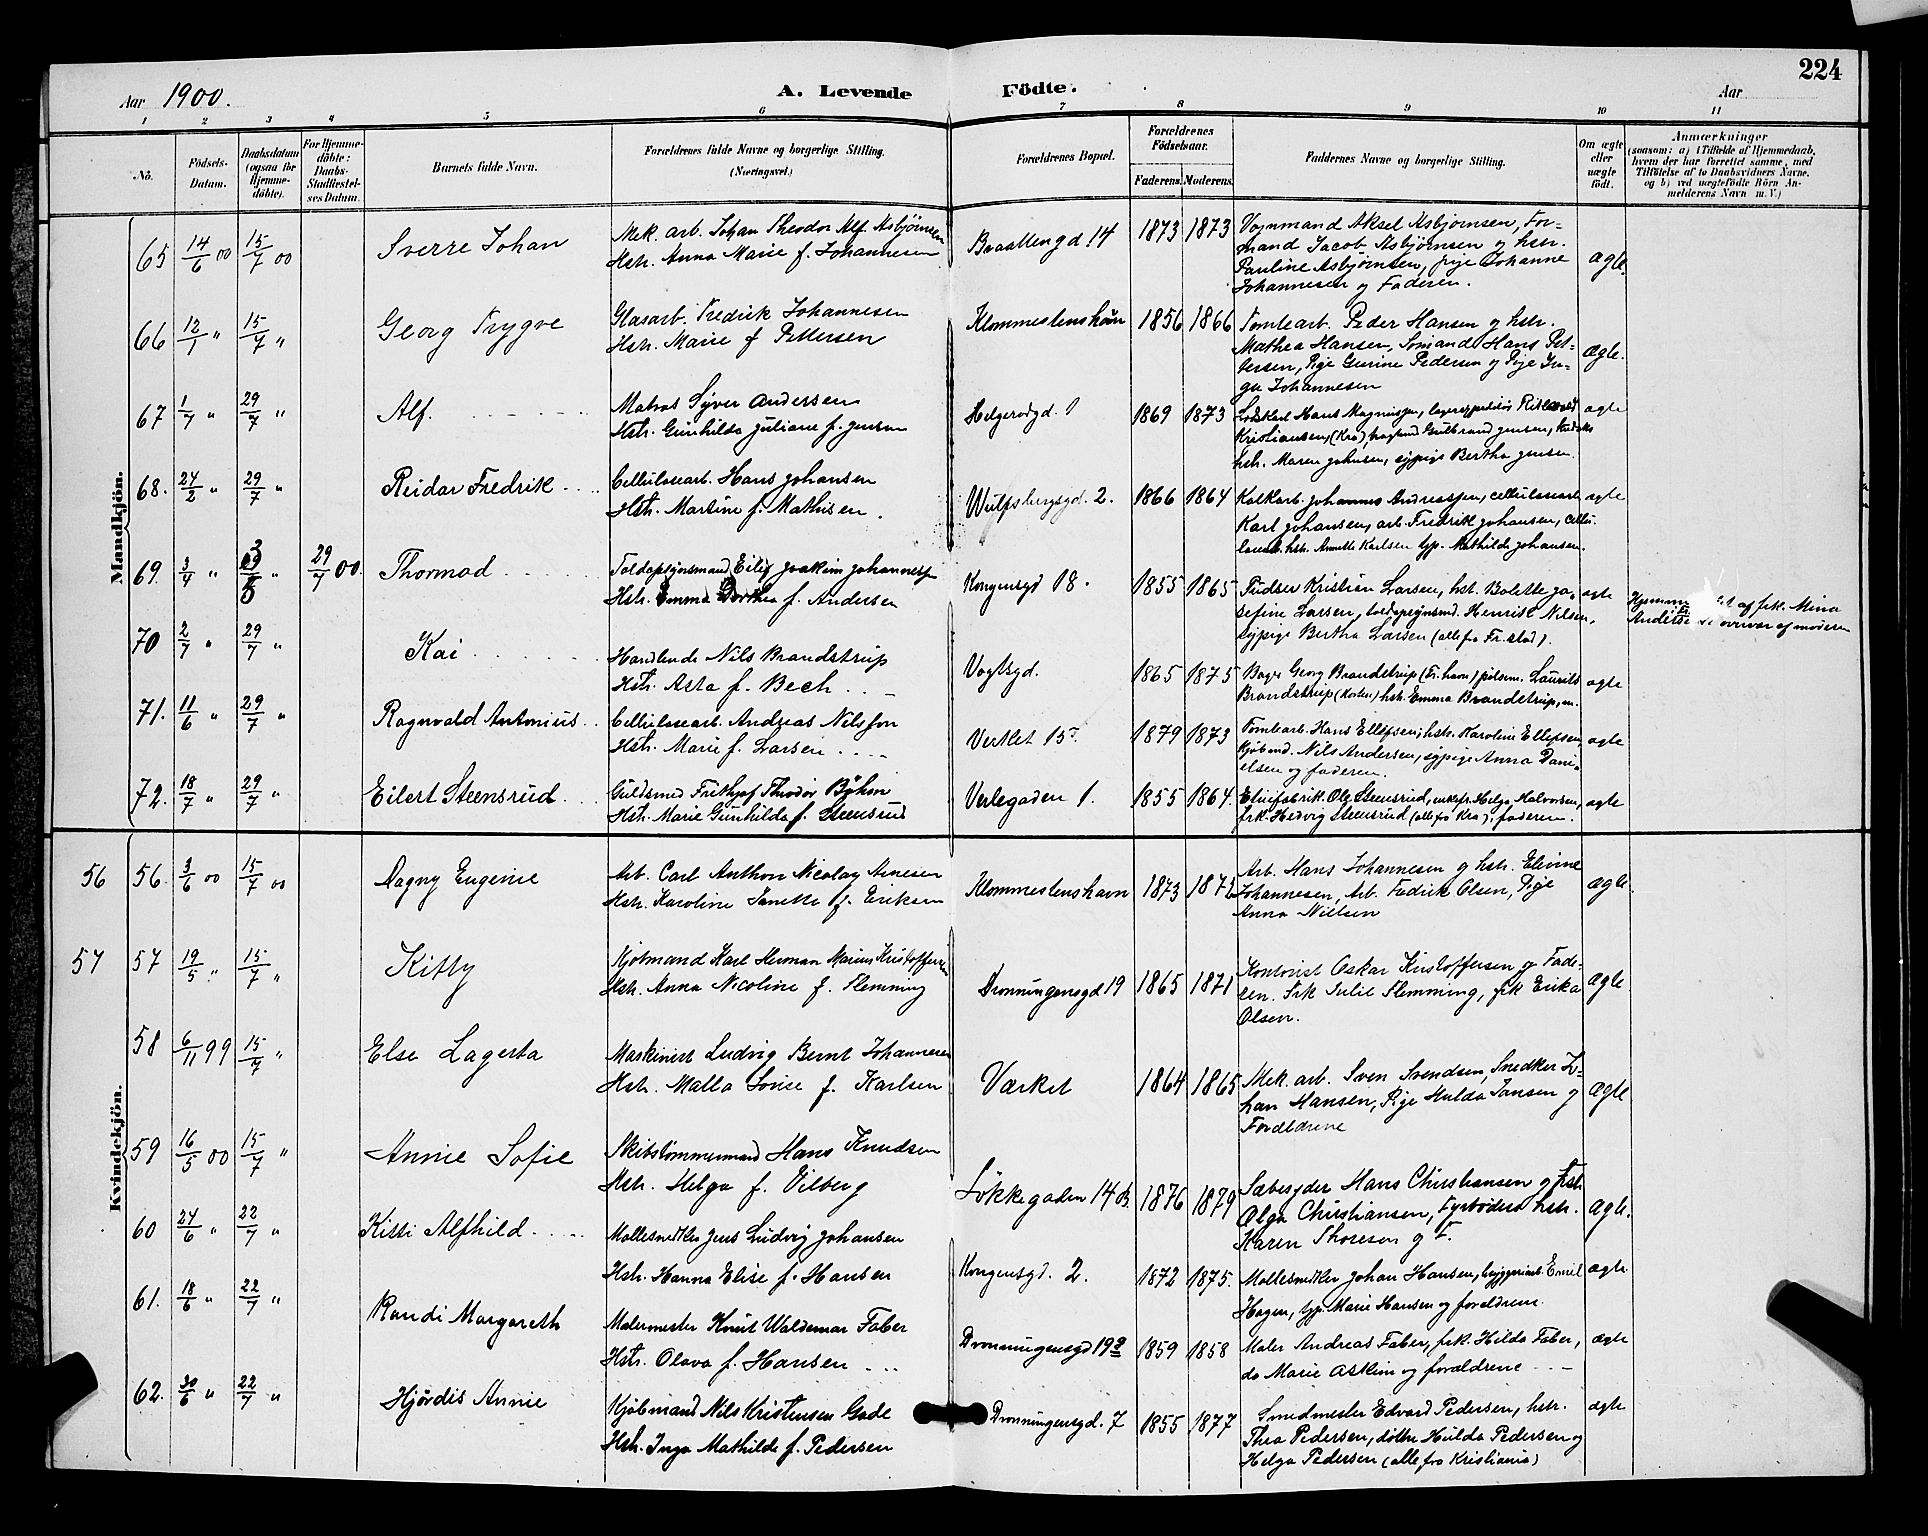 224
Aar 1900. A. Levende Födte. Aar
1 2 3 4 5 6 7 8 9 10 11
No.
Födsels-Datum.
Daabsdatum (ogsaa for Hjemme-döbte).
For Hjemme-döbte: Daabs-Stadfæstel-ses Datum.
Barnets fulde Navn.
Forældrenes fulde Navne og borgerlige Stilling. (Næringsvei.)
Forældrenes Bopæl.
Forældrenes Födselsaar.
Faderens. Moderens.
Faddernes Navne og borgerlige Stilling.
Om ægte eller uægte födt.
Anmærkninger (saasom: a) i Tilfælde af Hjemmedaab, hvem der har forrettet samme, med Tilföielse af to Daabsvidners Navne, og b) ved uægtefödte Börn An-melderens Navn m. V.)
Mandkjön.
65 14/6 00 15/7 00 Sverre Johan
Mek. arb. Johan Theodor Alf Asbjörnsen
Hstr. Anna Marie f. Johannesen
Braatengd 14 1873 1873
Vognmand Aksel Asbjørnsen, For-
mand Jacob Asbjørnsen og hstr.
Pauline Asbjørnsen, pige Johanne
Johannesen og Faderen.
ægte.
66 12/1 " 15/7 " Georg Trygve
Glasarb. Fredrik Johannesen
Hstr. Marie f Pettersen
Klommestenshavn 1856 1866
Tomtearb. Peder Hansen og hstr.
Mathea Hansen, Sømand Hans Pet-
tersen, Pige Gurine Pedersen og Pige In-
ga Johannesen
ægte.
67 1/7 " 29/7 " Alf.
Matros Syver Andersen
Hstr. Gunhilda Juliane f. Jensen
Helgerødgd. 1 1869 1873
Hans Magnussen,
Kristiansen, (Kra), Gulbrand Jensen,
hstr. Maren Johnsen, sypige Bertha Jensen.
ægte
68. 24/2 " 29/7 " Reidar Fredrik
Cellulosearb. Hans Johansen
Hstr. Martine f. Mathisen.
Wulfsbergsgd. 2. 1866 1864
Kalkarb. Johannes Andreassen, cellulosearb.
Karl Johansen, arb. Fredrik Johansen, cellu-
losearb. hstr. Annette Karlsen typ. Mathilde Johansen.
ægte
69. 3/4 " 3/5 " 29/7 00. Thormod
Toldopsynsmand Eilif Joakim Johannessen
Hstr. Emma Dorthea f. Andersen
Kongensgd 18. 1855 1865
Kristian Larsen, hst. Bolette Jo-
sefine Larsen, toldopsynsmd. Henrik Nilsen,
sypige Bertha Larsen (alle fra Fr.stad).
ægte
af frk. Mina
overvær af moderen
70 2/7 " 29/7 " Kai
Handlende Nils Brandstrup
Hstr. Asta f. Bech
Vogtsgd. 1865 1875
Bager Georg Brandstrup (Fr.havn) Laurits
Brandstrup hstr. Emma Brandstrup,
ægte
71. 11/6 " 29/7 " Ragnvald Antonius
Cellulosearb. Andreas Nilssen
Hstr. Marie f. Larsen
Verket 15 1879 1873
Tomtearb. Hans Ellefsen, hstr. Karoline Ellefsen
kjøbmd. Nils Andersen, sypige Anna Dani-
elsen og faderen.
ægte
72. 18/7 " 29/7 " Eilert Steensrud
Guldsmed Frithjof Theodor Böhm
Hstr. Marie Gunhilda f. Steensrud
Verlegaden 1. 1855 1864.
Etuifabrik. Ole Steensrud, enkefr. Helga Halvorsen,
frk. Hedvig Steensrud (alle fra Kra), faderen.
ægte
Kvindekjön.
56 56. 3/6 00 15/7 00 Dagny Eugenie
Arb. Carl Anthon Nicolay Arnesen
Hstr. Karoline Janette f. Eriksen
Klommestenshavn 1873 1872
Arb. Hans Johannesen og hstr. Elevine
Johannesen, Arb. Fredrik Olsen, Pige
Anna Nielsen
ægte.
57 57 19/5 " 15/7 " Kitty
Kjøbmand Karl Herman Marius Kristoffersen
Hstr. Anna Nicoline f. Flemming
Dronningensgd 19 1865 1871
Kontorist Oskar Kristoffersen og Fade-
ren. Frk Julie Flemming, frk Erika
Olsen.
ægte
58 6/11 99 15/7 " Else Lagerta
Maskinist Ludvig Bernt Johannesen
Hstr. Malla Lovise f. Karlsen
Værket 1864 1865
Mek. arb. Sven Svendsen, Snedker Jo-
han Hansen, Pige Hulda Jansen og
Forældrene
ægte
59 16/5 00 15/7 " Annie Sofie
Skibstömmermand Hans Knudsen
Hstr. Helga f. Vilberg
Løkkegaden 14 B. 1876 1879
Sæbesyder Hans Christiansen og hstr
Olga Christiansen, Fyrbøders hstr.
Karen Thoresen og F.
ægte.
60 24/6 " 22/7 " Kitti Alfhild
Møllesnedker Jens Ludvig Johansen
Hstr. Hanna Elise f. Hansen
Kongensgd. 2. 1872 1875.
Møllesnedker Johan Hansen, bryggeriarb. Emil
Hagen, typ. Marie Hansen og forældrene.
ægte
61. 18/6 " 22/7 " Randi Margareth
Malermester Knut Waldemar Faber
Hstr. Olava f. Hansen
Dronningensgd 19a 1859 1858
Maler Andreas Faber, frk. Hilda Faber,
do Marie Askim og forældrene
ægte
62. 30/6 " 22/7 " Hjørdis Annie
Kjøbmand Nils Kristensen Gade
Hstr. Inga Mathilde f. Pedersen
Dronningensgd. 7 1855 1877
Smedmester Edvard Pedersen, hstr.
Thea Pedersen, døttre Hulda Pedersen og
Helga Pedersen (alle fra Kristiania)
ægte